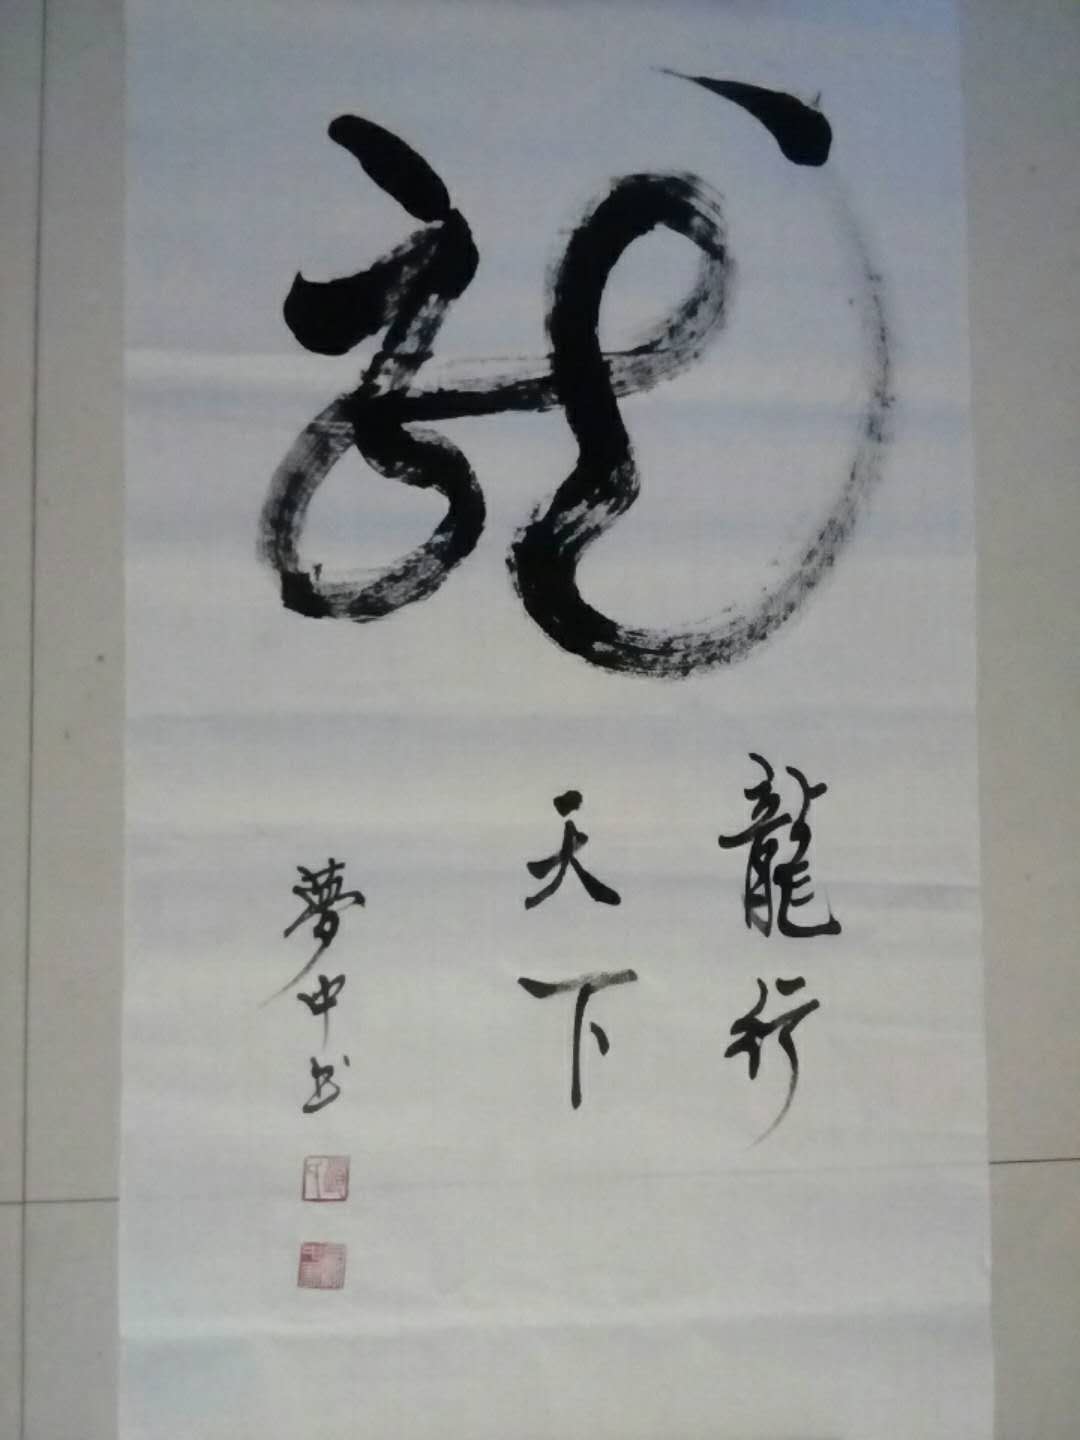 龍
龍行
天下
夢中书